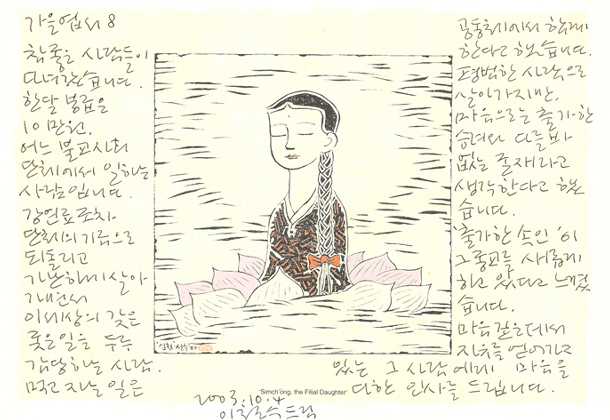 가을엽서 8
참 좋은 사람들이
다녀갔습니다.
한달 봉급은
10만원.
어느 불교사회
단체에서 일하는
사람입니다.
강연료조차
단체의 기금으로
되돌리고
가난하게 살아
가면서
이 세상의 갖은
궂은 일을 두루
감당하는 사람.
먹고 자는 일은
공동체에서 함께
한다고 했습니다.
평범한 사람으로
살아가지만,
마음으로는 출가한
승려와 다를바
없는 존재라고
생각한다고 했
습니다.
'출가한 속인'이
그 종교를 새롭게
하고 있다고 느꼈
습니다.
마음 같은데서
지혜를 얻어가고
있는 그 사람에게 마음을
다한 인사를 드립니다.
2003. 10. 4
드림
'Simch'ŏng, the Filial Daughter'